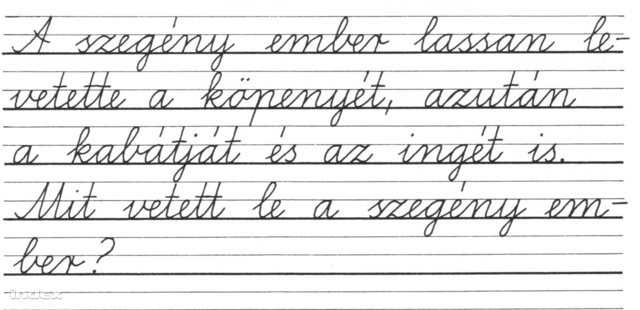 A szegény ember lassan le-
vetette a köpenyét, azután
a kabátját és az ingét is.
Mit vetett le a szegény em-
ber?
index